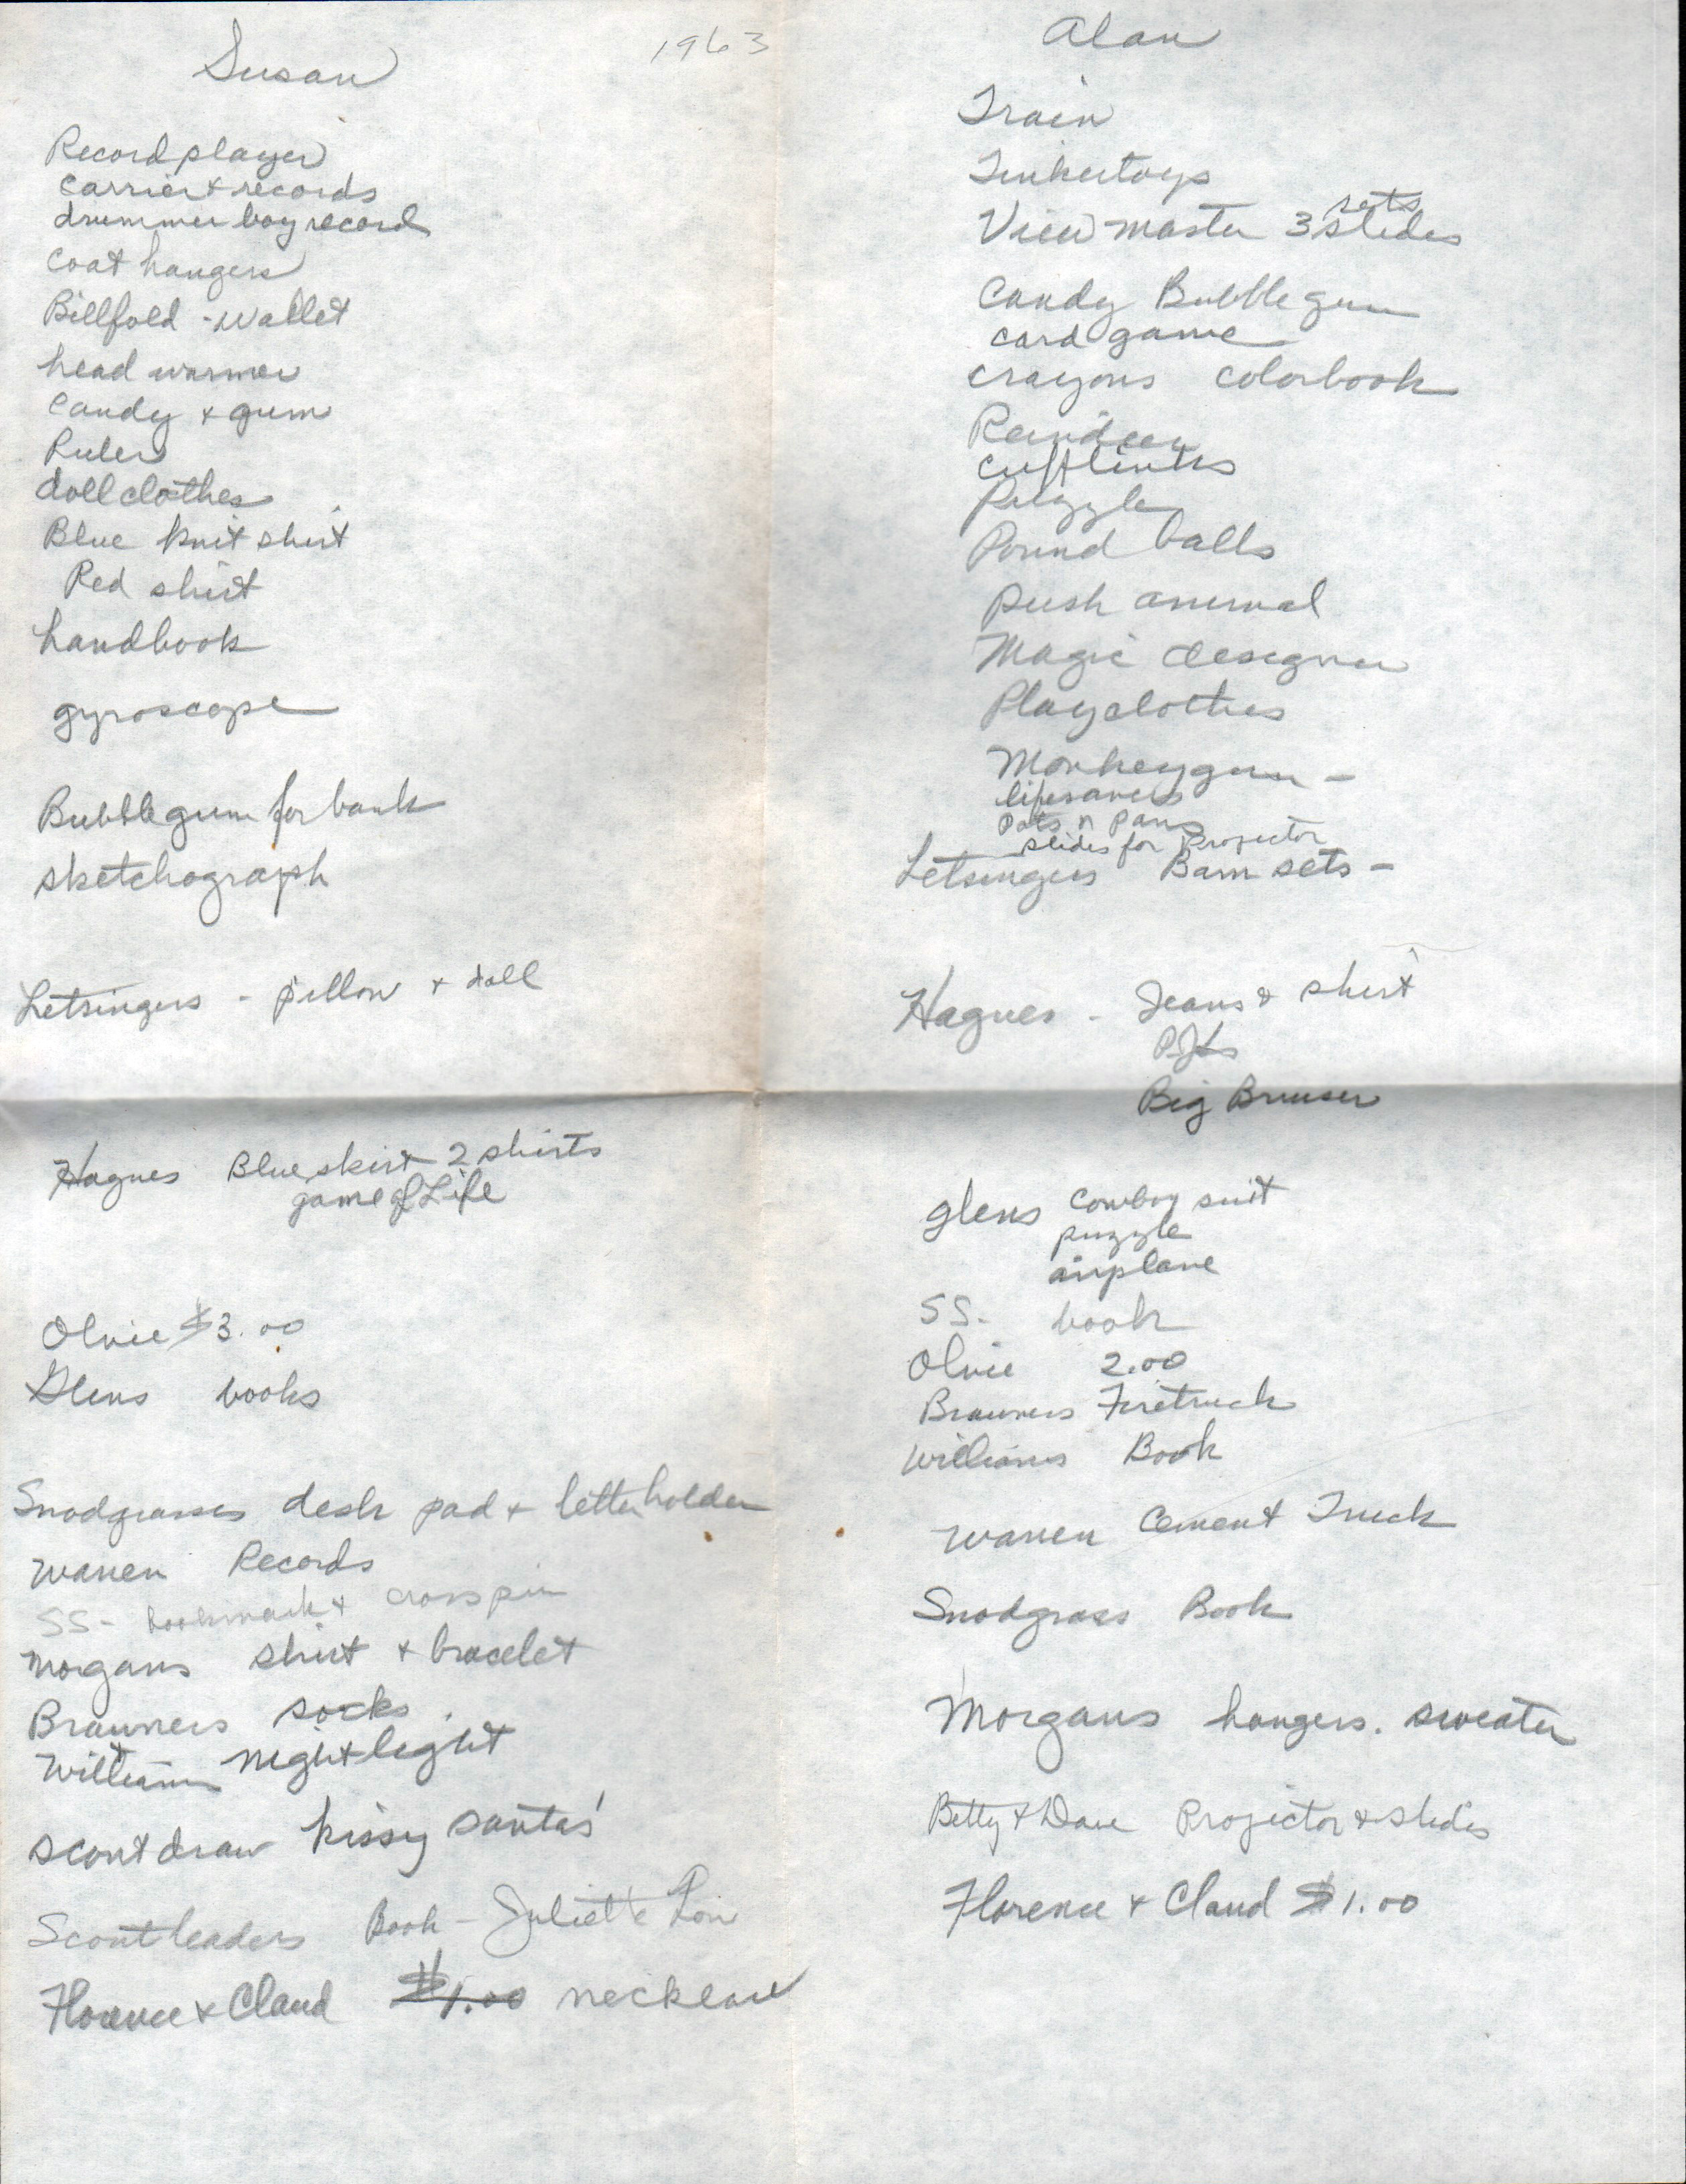 1963
Susan
Record player
carrier & records
drummer boy record
coat hangers
Billfold - wallet
head warmer
candy & gum
Ruler
doll clothes
Blue knit shirt
Red shirt
handbook
gyroscope
Bubble gum for bank
sketchograph
Letsingers - pillow & doll
Hagues Blue skirt 2 shirts
game of Life
Olvie $3.00
Glens books
Snodgrasses desk pad & letter holder
Warren Records
SS - bookmark & cross pin
Morgans shirt & bracelet
Brauners socks
Williams nightlight
scout draw kissy santas
Scout leaders Book - Juliette Low
Florence & Claud $1.00 necklace
Alan
Train
Tinkertoys
View master 3 sets slides
Candy Bubble gum
card game
crayons colorbook
Reindeer
cufflinks
Puzzle
Pound balls
Push animal
Magic designer
Playclothes
Monkeygum -
lifesavers
Pots n Pans
slides for Projector
Letsingers Barn sets -
Hagues - Jeans & shirt
PJs
Big Bruiser
glens cowboy suit
puzzle
airplane
SS. book
Olvie 2.00
Brauners Firetruck
Williams Book
Warren Cement Truck
Snodgrass Book
Morgans hangers. sweater
Betty & Dave Projector & slides
Florence & Claud $1.00